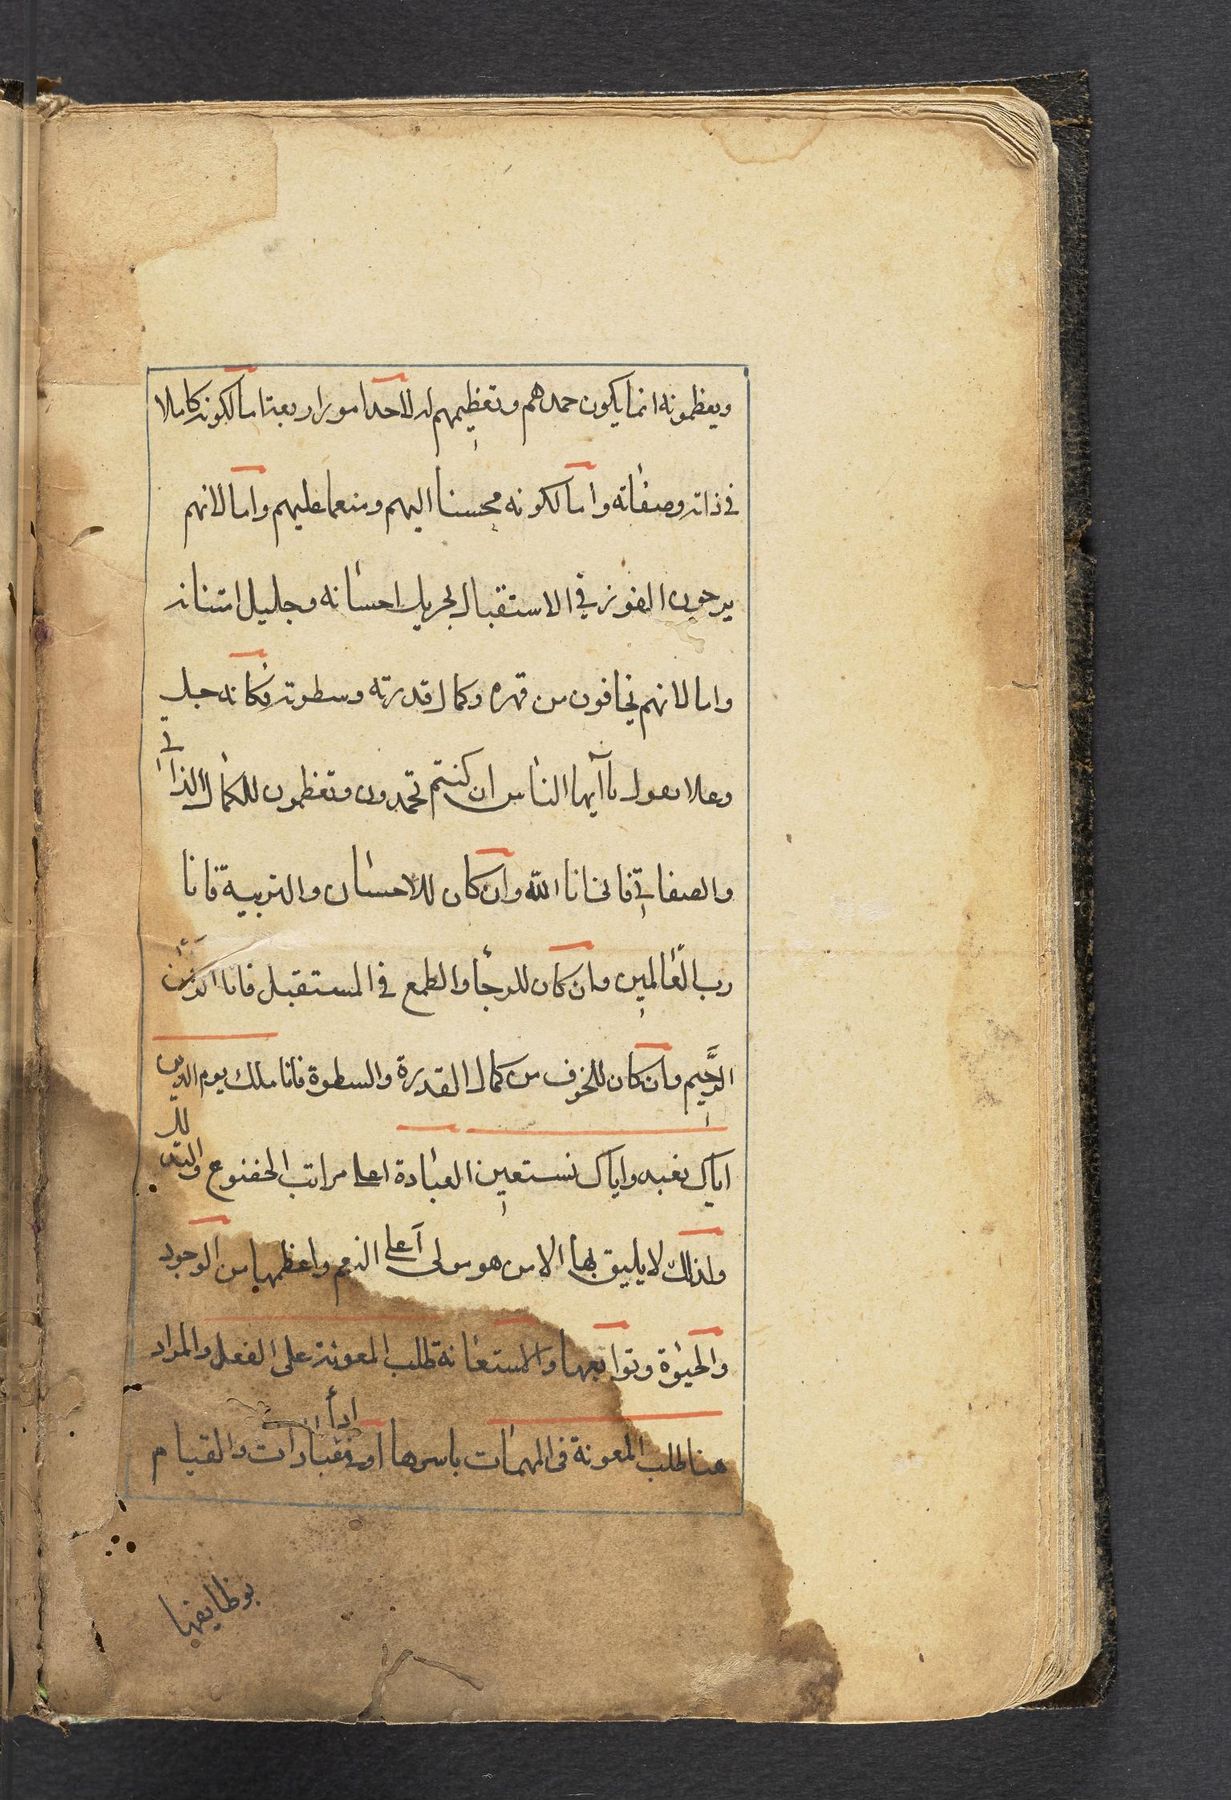 ويعظمونه انما يكون حمدهم وتعظيمهم له لاحد امور اربعة اما لكونه كاملا
في ذاته وصفاته واما لكونه محسنا اليهم ومنعما عليهم واما لانهم
يرجون الفوز في الاستقبال بجزيل احسانه وجليل امتنانه
واما لانهم يخافون من قهره وكمال قدرته وسطوته فكانه جل
وعلا يقول يا ايها الناس ان كنتم تحمدون وتعظمون للكمال الذاتي
والصفاتي فانى انا الله وان كان للاحسان والتربية فانا
رب العالمين وان كان للرجأ والطمع في المستقبل فانا الرحمن
الرَّحيم وان كان للخوف من كمال القدرة والسطوة فانا ملك يوم الدين
اياك نعبد واياك نستعين العبادة اعلى مراتب الخضوع والتذلل
ولذلك لا يليق بها الا من هو مولى اعلى النعم واعظمها من الوجود
والحيوة وتوابعها والاستعانة طلب المعونة على الفعل والمراد
هنا طلب المعونة في المهمات باسرها او في ادأ العبادات والقيام
بوظايفها